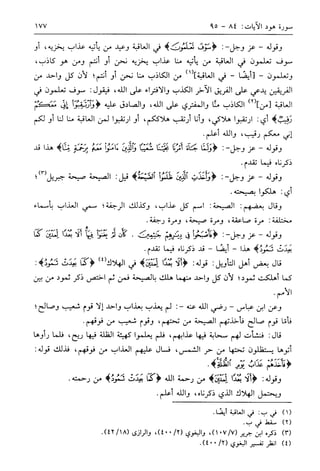 سورة هود الآيات: ٨٤ - ٩٥ ١٧٧
وقوله - عز وجل -: ﴿سَوْفَ تَعْلَمُونَ﴾ في العاقبة وعيد من يأتيه عذاب يخزيه، أو
سوف تعلمون في العاقبة من يأتيه منا عذاب يخزيه نحن أو أنتم ومن هو كاذب،
وتعلمون - [أيضًا - في العاقبة](١) من الكاذب منا نحن أو أنتم؛ لأن كل واحد من
الفريقين يدعي على الفريق الآخر الكذب والافتراء على الله، فيقول: سوف تعلمون في
العاقبة [من](٢) الكاذب منَّا والمفتري على الله، والصادق عليه ﴿وَارْتَقِبُوا إِنِّي مَعَكُمْ
رَقِيبٌ﴾ أي: ارتقبوا هلاكي، وأنا أرتقب هلاككم، أو ارتقبوا لمن العاقبة منا لنا أو لكم
إني معكم رقيب، والله أعلم.
وقوله - عز وجل -: ﴿وَلَمَّا جَاءَ أَمْرُنَا نَجَّيْنَا شُعَيْبًا وَالَّذِينَ آمَنُوا مَعَهُ بِرَحْمَةٍ مِنَّا﴾ هذا قد
ذكرناه فيما تقدم.
وقوله - عز وجل -: ﴿وَأَخَذَتِ الَّذِينَ ظَلَمُوا الصَّيْحَةُ﴾ قيل: الصيحة صيحة جبريل(٣)؛
أي: هلكوا بصيحته.
وقال بعضهم: الصيحة: اسم كل عذاب، وكذلك الرجفة؛ سمي العذاب بأسماء
مختلفة: مرة صاعقة، ومرة صيحة، ومرة رجفة.
وقوله - عز وجل -: ﴿فَأَصْبَحُوا فِي دِيَارِهِمْ جَاثِمِينَ . كَأَنْ لَمْ يَغْنَوْا فِيهَا أَلَا بُعْدًا لِمَدْيَنَ كَمَا
بَعِدَتْ ثَمُودُ﴾ هذا - أيضًا - قد ذكرناه فيما تقدم.
قال بعض أهل التأويل: قوله: ﴿أَلَا بُعْدًا لِمَدْيَنَ﴾ في الهلاك(٤) ﴿كَمَا بَعِدَتْ ثَمُودُ﴾:
كما أهلكت ثمود؛ لأن كل واحد منهما هلك بالصيحة فمن ثم اختص ذكر ثمود من بين
الأمم.
وعن ابن عباس - رضي الله عنه -: لم يعذب بعذاب واحد إلا قوم شعيب وصالح؛
فأمّا قوم صالح فأخذتهم الصيحة من تحتهم، وقوم شعيب من فوقهم.
قال: فنشأت لهم سحابة فيها عذابهم، فلم يعلموا كهيئة الظلة فيها ريح، فلما رأوها
أتوها يستظلون تحتها من حر الشمس، فسال عليهم العذاب من فوقهم، فذلك قوله:
﴿فَأَخَذَهُمْ عَذَابُ يَوْمِ الظُّلَّةِ﴾.
وقوله: ﴿أَلَا بُعْدًا لِمَدْيَنَ﴾ من رحمة الله ﴿كَمَا بَعِدَتْ ثَمُودُ﴾ من رحمته.
ويحتمل الهلاك الذي ذكرناه، والله أعلم.
(١) في ب: في العاقبة أيضًا.
(٢) سقط في ب.
(٣) ذكره ابن جرير (١٠٧/٧)، والبغوي (٤٠٠/٢)، والرازي (٤٢/١٨).
(٤) انظر تفسير البغوي (٤٠٠/٢).